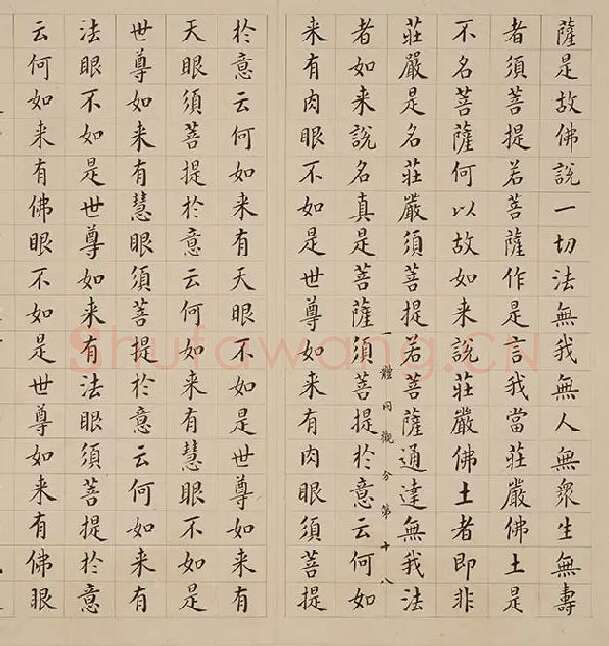 薩是故佛說一切法無我無人無眾生無壽
者須菩提若菩薩作是言我當莊嚴佛土是
不名菩薩何以故如来說莊嚴佛土者即非
莊嚴是名莊嚴須菩提若菩薩通達無我法
一體同觀分第十八
者如来說名真是菩薩須菩提扵意云何如
来有肉眼不如是世尊如来有肉眼須菩提
扵意云何如来有天眼不如是世尊如来有
天眼須菩提扵意云何如来有慧眼不如是
世尊如来有慧眼須菩提扵意云何如来有
法眼不如是世尊如来有法眼須菩提扵意
云何如来有佛眼不如是世尊如来有佛眼
Shufawang.CN